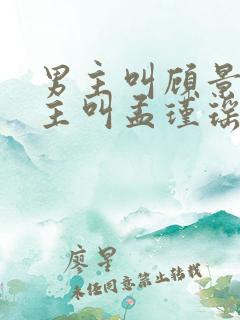 男主叫顾景
主叫孟瑾瑶
廖星
未经同意禁止转载